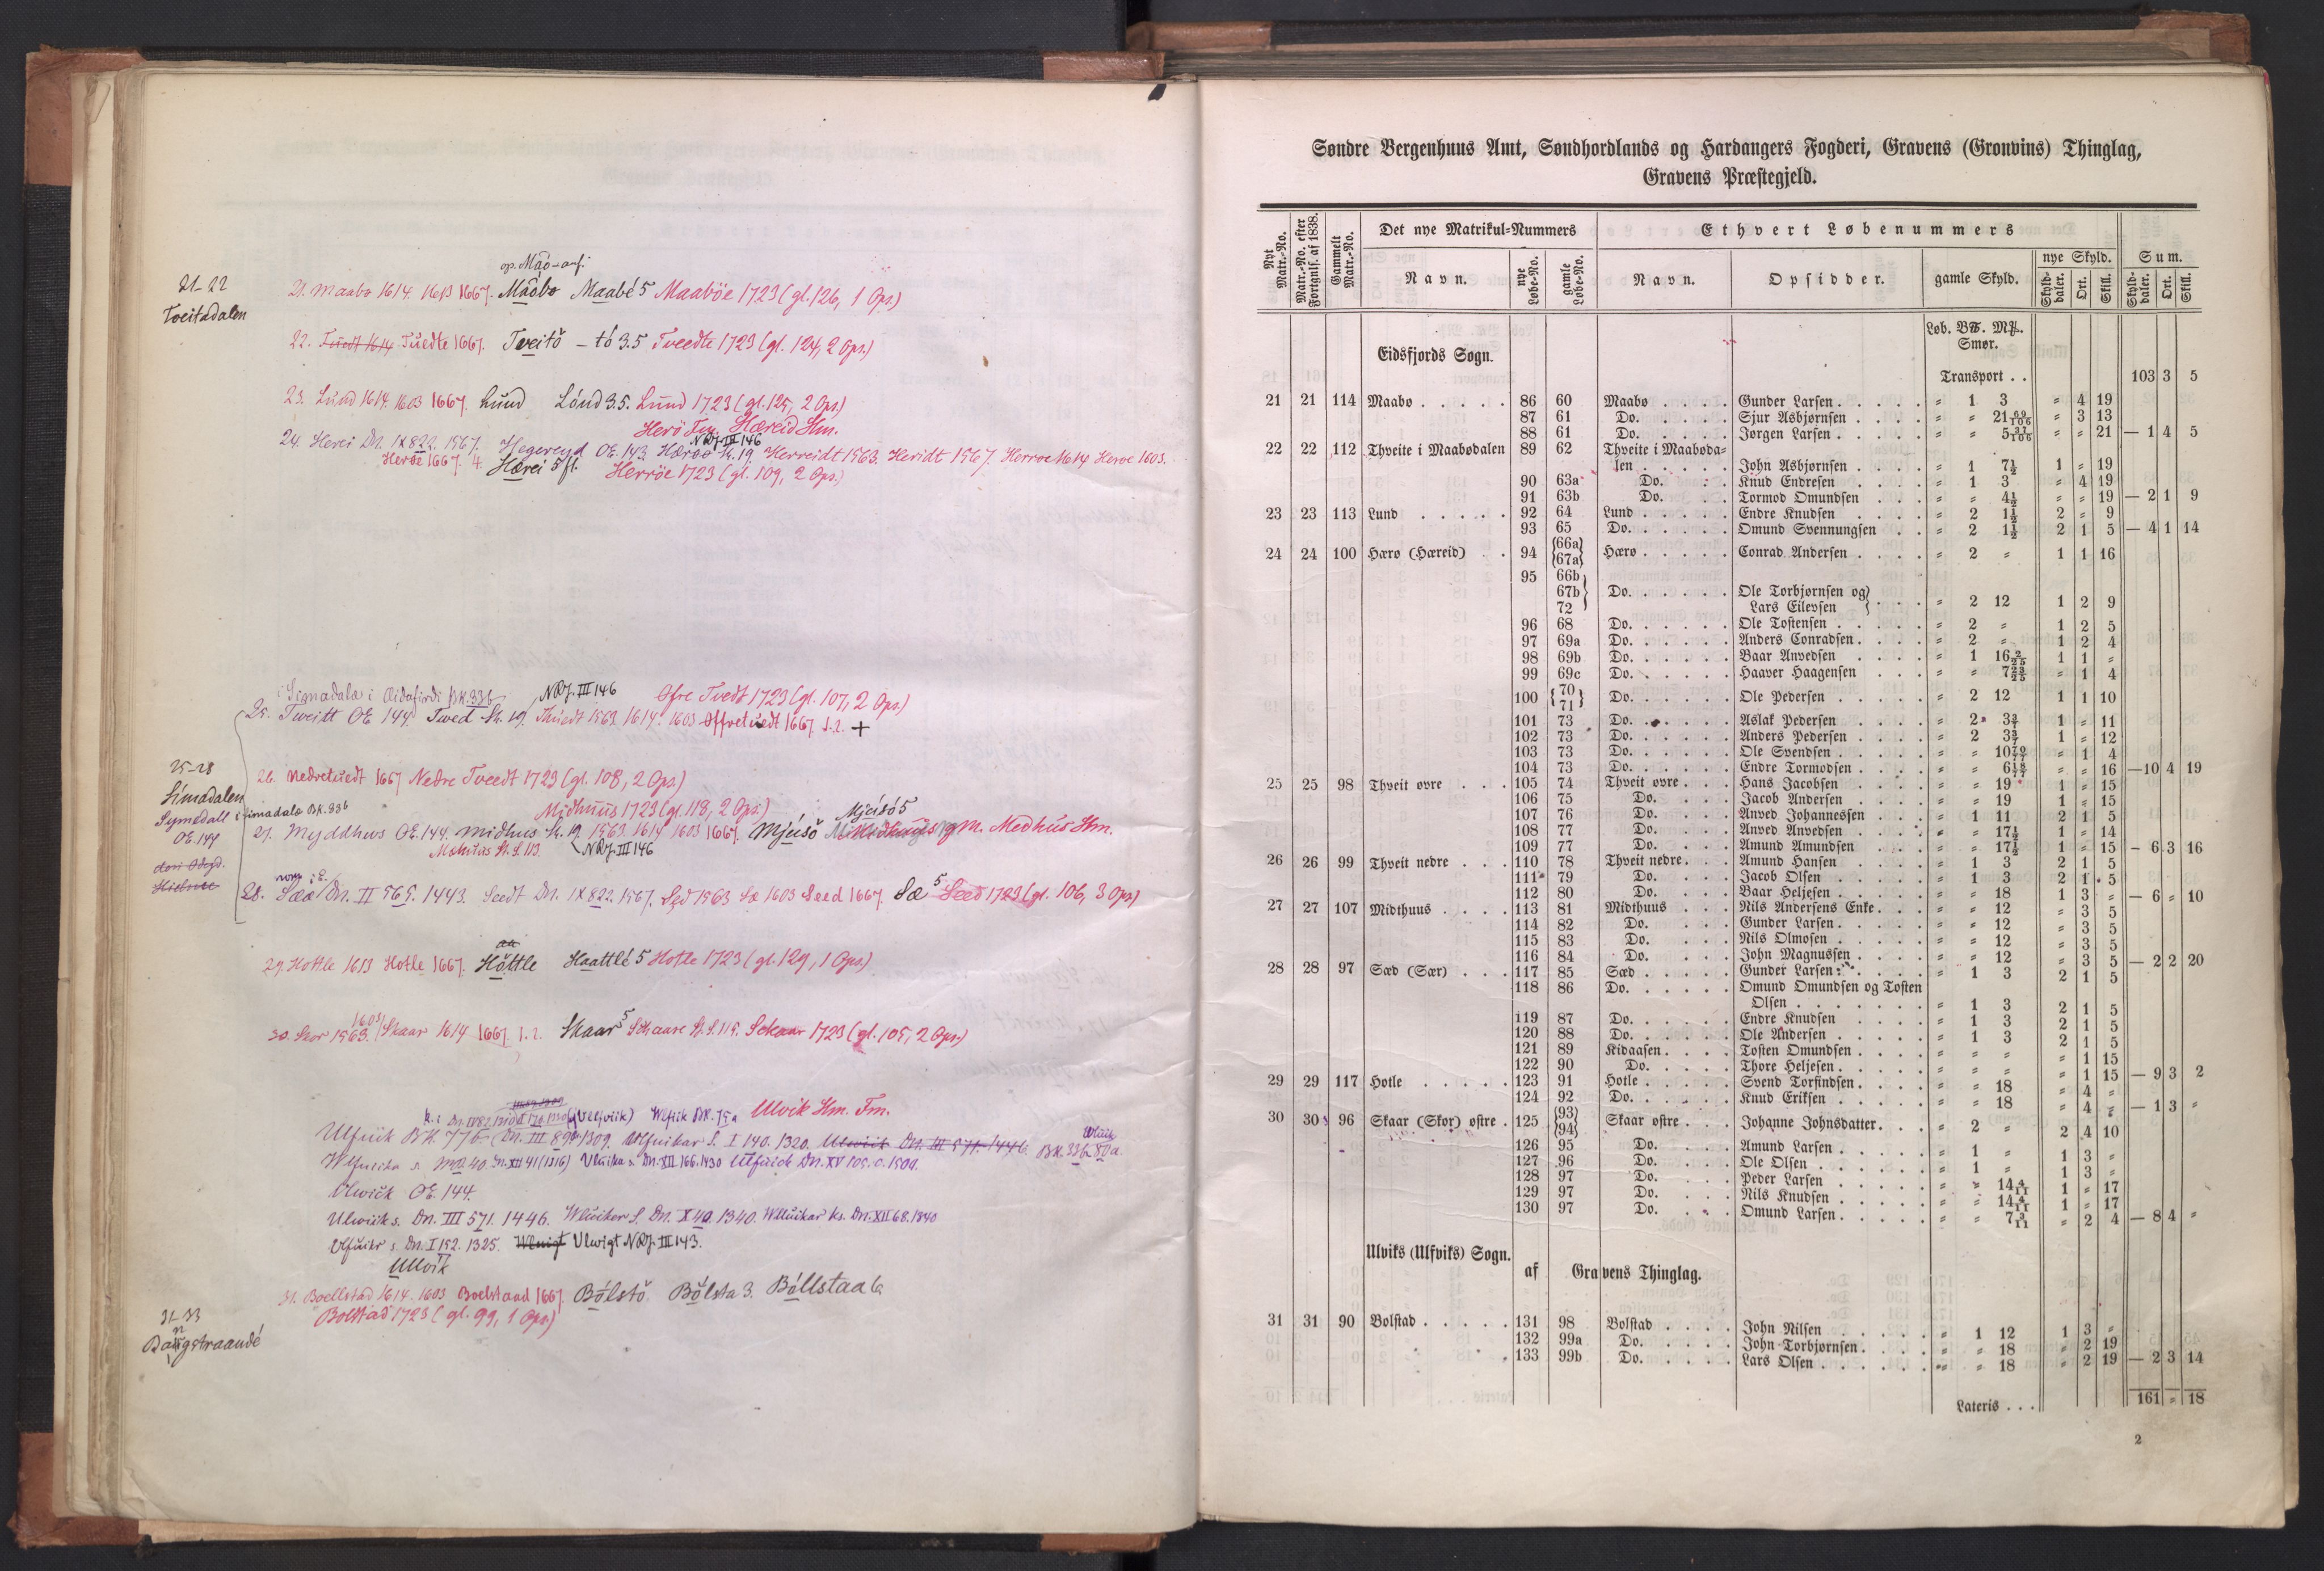 op. Mão-anf.
21-22
Tveitadalen
21. Maabo 1614. 1613 1667. Mãobo Maabé 5 Maaböe 1723 (gl. 126, 1 Ops.)
22. Tuedt 1614 Tuedte 1667. Tveitŏ – tó 3.5 Tveedte 1723 (gl. 124, 2 Ops.)
23. Lund 1614. 1603 1667. Lund Lónd 3.5. Lund 1723 (gl. 125, 2 Ops.)
Herö Fm. Hæreid Hm.
NRJ. III 146
24. Herei Dn. IX 822. 1567. Hegereyd OE. 143. Hæroo St. 19 Herreidt 1563. Heridt 1567. Herroe 1614 Heroe 1603.
Heroe 1667. 4. Hærei 5 fl. Herröe 1723 (gl. 109, 2 Ops.)
i Simadala i Æidafirdi BK. 33b NRJ. III 146 Øfre Tvedt 1723 (gl. 107, 2 Ops.)
25. Tweitt OE 144. Twed St. 19. Thuedt 1563. 1614. 1603 Offretuedt 1667. +
25-28
Simadalen
Symedall
OE. 144
i simadala BK. 33b
26. Nedretuedt 1667 Nedre Tveedt 1723 (gl. 108, 2 Ops.)
Midhuus 1723 (gl. 118, 2 Ops.) Mjúsó 5
27. Myddhws OE. 144. midhus St. 19 1563. 1614 1603 1667. Mjúsŏ gm. Medhús Hm.
NRJ. III 146
28. Sææ Dn. II 565. 1443. Seedt Dn. IX 822. 1567. Sed 1563 Sæ 1603 Seed 1667. Sæ 5 Seed 1723 (gl. 106, 3 Ops.)
29. Hottle 1613 Hotle 1667. Hŏttle Haattlé 5 Hotle 1723 (gl. 129, 1 Ops.)
30. Skor 1563. 1603 Skaar 1614 1667. Skaar 5 Schaare St. S. 115. Schaar 1723 (gl. 105, 2 Ops.)
Wlfiik BK. 75a Ulvik Hm. Fm.
Ulfuiik BK. 77b Dn. III 89. 1309. Vlfuikar S. I 140. 1320. Ulwiik Dn. III 571. 1446. BK. 33b 80a
Vluika s. Dn. XII 166. 1430 Ulfuick Dn. XV 105. c. 1500.
Vlwick OE. 144.
Ulwiik s. Dn. III 571. 1446. Wluikar S. Dn. X 40. 1340. Wlluikar ks. Dn. XII 68. 1340
Vlfuikr s. Dn. I 152. 1325. Vlwigt NRJ. III 143.
Ullvik
31. Boellstad 1614. 1603 Boelstaad 1667. Bŏlstŏ. Bŏlsta 3. Bóllstaa 6
Bollstad 1723 (gl. 99, 1 Ops.)
31-33
Søndre Bergenhuus Amt, Søndhordlands og Hardangers Fogderi, Gravens (Gronvins) Thinglag,
Gravens Præstegjeld.
Nyt Matr.-No. Matr.-No. efter Fortgnls. af 1838. Gammelt Matr.-No. Det nye Matrikul-Nummers Ethvert Løbenummers
Navn. nye Løbe-No. gamle Løbe-No. Navn. Opsidder. gamle Skyld. nye Skyld. Sum.
Skyld-daler. Ort. Skill. Skyld-daler. Ort. Skill.
Løb. B℔. M℔.
Smør.
Eidsfjords Sogn.
Transport . . 103 3 5
21 21 114 Maabø . . . . . 86 60 Maabø . . . . Gunder Larsen . . . . . „ 1 3 „ 4 19
87 61 Do. . . . . Sjur Asbjørnsen . . . . „ „ 21 69/106 „ 3 13
88 61 Do. . . . . Jørgen Larsen . . . . . „ „ 5 37/106 „ „ 21 — 1 4 5
22 22 112 Thveite i Maabødalen 89 62 Thveite i Maabøda-
len . . . . . John Asbjørnsen . . . . „ 1 7½ 1 „ 19
90 63a Do. . . Knud Endresen . . . . „ 1 3 „ 4 19
91 63b Do. . . Tormod Omundsen . . . „ „ 4½ „ „ 19 — 2 1 9
23 23 113 Lund . . . . . 92 64 Lund . . . . . Endre Knudsen . . . . „ 2 1½ 2 „ 9
93 65 Do. . . . . Omund Svennungsen . . „ 2 1½ 2 1 5 — 4 1 14
24 24 100 Hærø (Hæreid) . . 94 {66a 67a} Hærø . . . . . Conrad Andersen . . . . „ 2 „ 1 1 16
95 66b 67b 72} Do. . . . . . Ole Torbjørnsen og
Lars Eilevsen } . . . „ 2 12 1 2 9
96 68 Do. . . . . . Ole Tostensen . . . . . „ 2 „ 1 2 5
97 69a Do. . . . . . Anders Conradsen . . . . „ 2 „ 1 2 4
98 69b Do. . . . . . Baar Anvedsen . . . . „ 1 16 2/25 1 1 „
99 69c Do. . . . . . Haaver Haagensen . . . „ „ 7 23/25 „ 1 4
100 {70 71} Do. . . . . . Ole Pedersen . . . . . „ 2 12 1 1 10
101 73 Do. . . . . . Aslak Pedersen . . . . „ 2 3 3/7 1 „ 11
102 73 Do. . . . . . Anders Pedersen . . . . „ 2 3 3/7 1 „ 12
103 73 Do. . . . . . Ole Svendsen . . . . . „ „ 10 70/77 „ 1 4
104 73 Do. . . . . . Endre Tormodsen . . . . „ „ 6 18/77 „ „ 16 — 10 4 19
25 25 98 Thveit øvre . . . 105 74 Thveit øvre . . . Hans Jacobsen . . . . „ „ 19 1 „ 15
106 75 Do. . . . Jacob Andersen . . . . „ „ 19 1 „ 15
107 76 Do. . . . Anved Johannessen . . . „ 1 11 2 1 5
108 77 Do. . . . Anved Anvedsen . . . . „ „ 17½ 1 „ 14
109 77 Do. . . . Amund Amundsen . . . „ „ 17½ 1 „ 15 — 6 3 16
26 26 99 Thveit nedre . . . 110 78 Thveit nedre . . . Amund Hansen . . . . „ 1 3 2 1 5
111 79 Do. . . . Jacob Olsen . . . . . „ 1 3 2 1 5
112 80 Do. . . . Baar Heljesen . . . . . „ „ 18 1 3 „ — 6 „ 10
27 27 107 Midthuus . . . . 113 81 Midthuus . . . Nils Andersens Enke . . . „ „ 12 „ 3 5
114 82 Do. . . . Gunder Larsen . . . . . „ „ 12 „ 3 5
115 83 Do. . . . Nils Olmosen . . . . . „ „ 12 „ 3 5
116 84 Do. . . . John Magnussen . . . . „ „ 12 „ 3 5 — 2 2 20
28 28 97 Sæd (Sær) . . . 117 85 Sæd . . . . . Gunder Larsen . . . . . „ 1 3 2 1 5
118 86 Do. . . . . . Omund Omundsen og Tosten
Olsen . . . . . . . „ 1 3 2 1 5
119 87 Do. . . . . . Endre Knudsen . . . . „ 1 3 2 1 5
120 88 Do. . . . . . Ole Andersen . . . . . „ 1 3 2 1 5
121 89 Kidaasen . . . . Tosten Omundsen . . . . „ „ „ „ 1 15
122 90 Do. . . . . Thore Heljesen . . . . . „ „ „ „ 1 15 — 9 3 2
29 29 117 Hotle . . . . . 123 91 Hotle . . . . . Svend Torfindsen . . . . „ „ 18 „ 4 „
124 92 Do. . . . . . Knud Eriksen . . . . . „ „ 18 „ 4 „ — 1 3 „
30 30 96 Skaar (Skor) østre . 125 {93 94} Skaar østre . . . Johanne Johnsdatter . . . „ 2 „ 2 4 10
126 95 Do. . . . Amund Larsen . . . . . „ 1 „ 1 3 „
127 96 Do. . . . Ole Olsen . . . . . . „ 1 „ 1 3 „
128 97 Do. . . . Peder Larsen . . . . . „ „ 14 4/11 1 „ 17
129 97 Do. . . . Nils Knudsen . . . . . „ „ 14 4/11 1 „ 17
130 97 Do. . . . Omund Larsen . . . . . „ „ 7 3/11 „ 2 4 — 8 4 „
Ulviks (Ulfviks) Sogn. af Gravens Thinglag.
31 31 90 Bolstad . . . . . 131 98 Bolstad . . . . John Nilsen . . . . . „ 1 12 1 3 „
132 99a Do. . . . . John Torbjørnsen . . . . „ „ 18 „ 2 19
133 99b Do. . . . . Lars Olsen . . . . . . „ „ 18 „ 2 19 — 2 3 14
Lateris . . . 161 „ 18
2